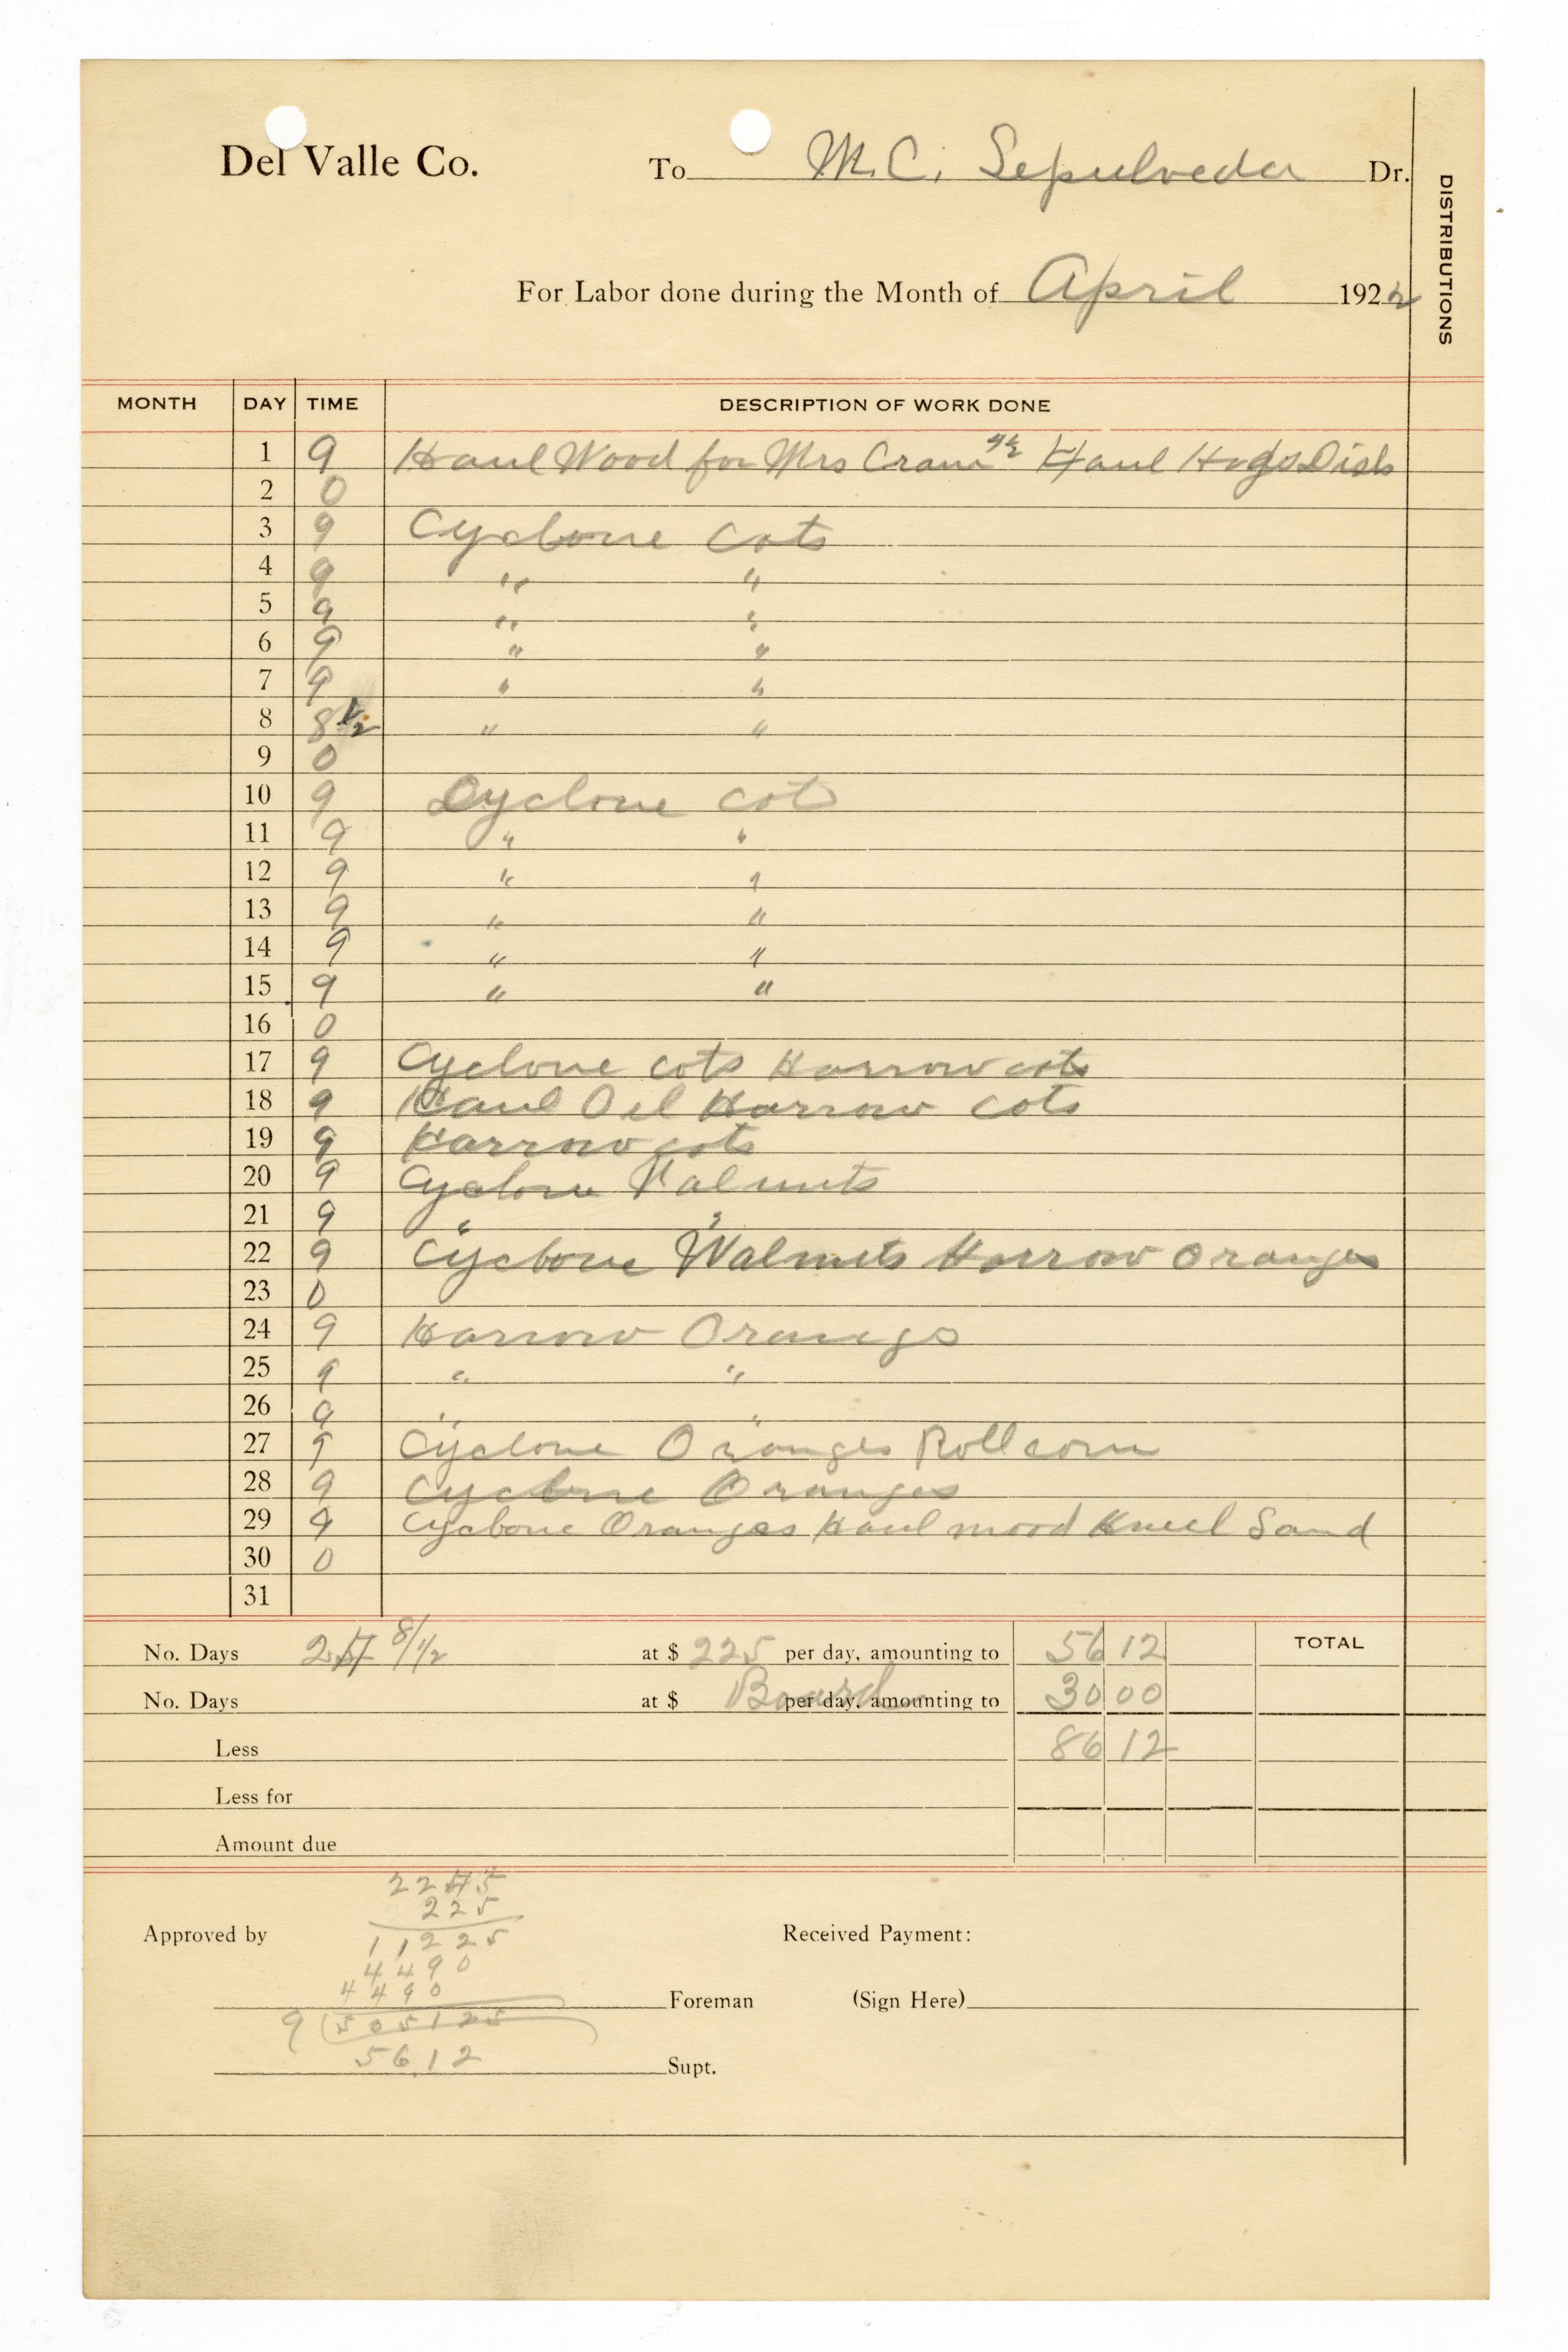 Del Valle Co. To M. C. Sepulveda Dr.
DISTRIBUTIONS
For Labor done during the Month of April 1922
MONTH DAY TIME DESCRIPTION OF WORK DONE
1 9 Haul Wood for Mrs Cram Haul Hogs Disk
2 0
3 9 Cyclone Cots
4 9 " "
5 9 " "
6 9 " "
7 9 " "
8 8 1/2 " "
9 0
10 9 Cyclone cots
11 9 " "
12 9 " "
13 9 " "
14 9 " "
15 9 " "
16 0
17 9 Cyclone cots Harrow cots
18 9 Haul Oil Harrow cots
19 9 Harrow cots
20 9 Cyclone Walnuts
21 9 " "
22 9 Cyclone Walnuts Harrow Oranges
23 0
24 9 Harrow Oranges
25 9 " "
26 9 " "
27 9 Cyclone Oranges Roll corn
28 9 Cyclone Oranges
29 9 Cyclone Oranges Haul wood Sand
30 0
31
No. Days 24 8 1/2 at $ 225 per day, amounting to 56 12 TOTAL
No. Days at $ Board per day, amounting to 30 00
Less 86 12
Less for
Amount due
2245
225
Approved by Received Payment:
11225
4490
4490
Foreman (Sign Here)
9 505125
5612
Supt.